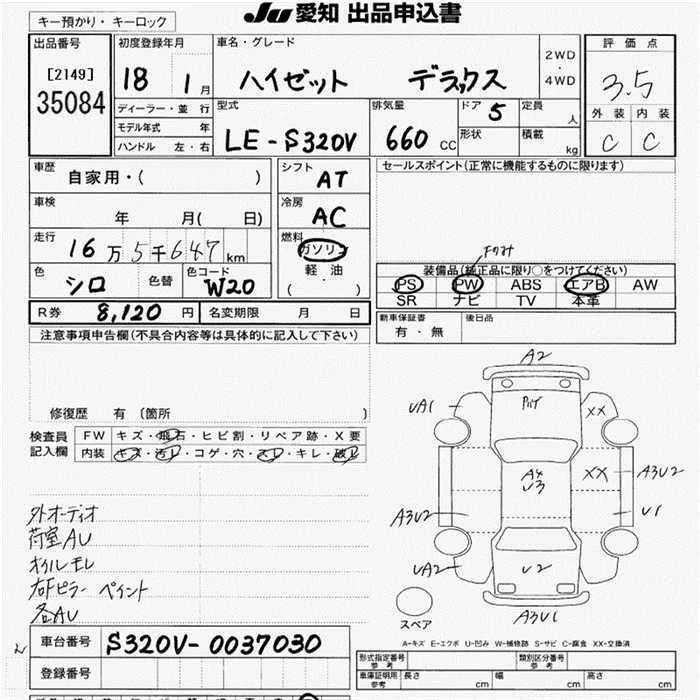 JU 愛知 出品申込書
キー預かり・キーロック
出品番号
[2149]
35084
初度登録年月
18 1 月
ディーラー・並行
モデル年式 年
ハンドル 左・右
車名・グレード
ハイゼット デラックス
2WD
・
4WD
型式
LE-S320V
排気量
660 CC
ドア 5
形状
定員
人
積載
kg
評価点
3.5
外装 内装
C C
車歴
自家用・( )
車検
年 月( 日)
走行
16万5千647km
色
シロ
色替
色コード
W20
シフト
AT
冷房
AC
燃料
ガソリン
・
軽油
( ・ )
R券 8,120 円
名変期限 月 日
セールスポイント(正常に機能するものに限ります)
装備品(純正品に限り○をつけてください)
PS PW ABS エアB AW
SR ナビ TV 本革
新車保証書
有・無
後日品
注意事項申告欄(不具合内容等は具体的に記入して下さい)
修復歴 有 〔箇所 〕
検査員
記入欄
FW キズ・飛石・ヒビ割・リペア跡・X要
内装 キズ・汚レ・コゲ・穴・スレ・キレ・破レ
外オーディオ
荷室AU
オイルモレ
右Fピラー ペイント
各AU
A2
UA1
XX
A4
U3
XX
A3U2
A3U2
U1
UA2
U2
A3U1
スペア
A-キズ E-エクボ U-凹み W-補修跡 S-サビ C-腐食 XX-交換済
車台番号 S320V-0037030
登録番号
形式指定番号
参考
類別区分番号
参考
車庫証明用
参考
長さ cm 幅 cm 高さ cm